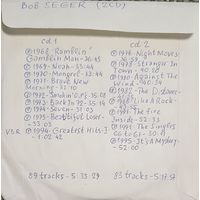 BOB SEGER (2CD)
cd 1
℗1968 Ramblin'
Gamblin Man-36:45
℗1969-Noah-33:44
℗1970-Mongrel-33:44
℗1971-Brand New
Morning-32:10
℗1972-Smokin' O.P.'S-35:08
℗1973-Back In '72-35:16
℗1974-Seven-31:03
℗1975-Beautiful Loser-
33:03
VBR ℗1994-Greatest Hits-I
-1:02:42
89 tracks-5:33:29
cd 2
℗1976-Night Moves-
℗1978-Stranger In
Town-40:58
℗1980-Against The
Wind-
℗1982-The Distance-
℗1986-Like A Rock-
℗1991-The Fire
Inside-52:33
℗1991-The Singles
℗1995-It's A Mystery
-52:00
83 tracks-5:17:57